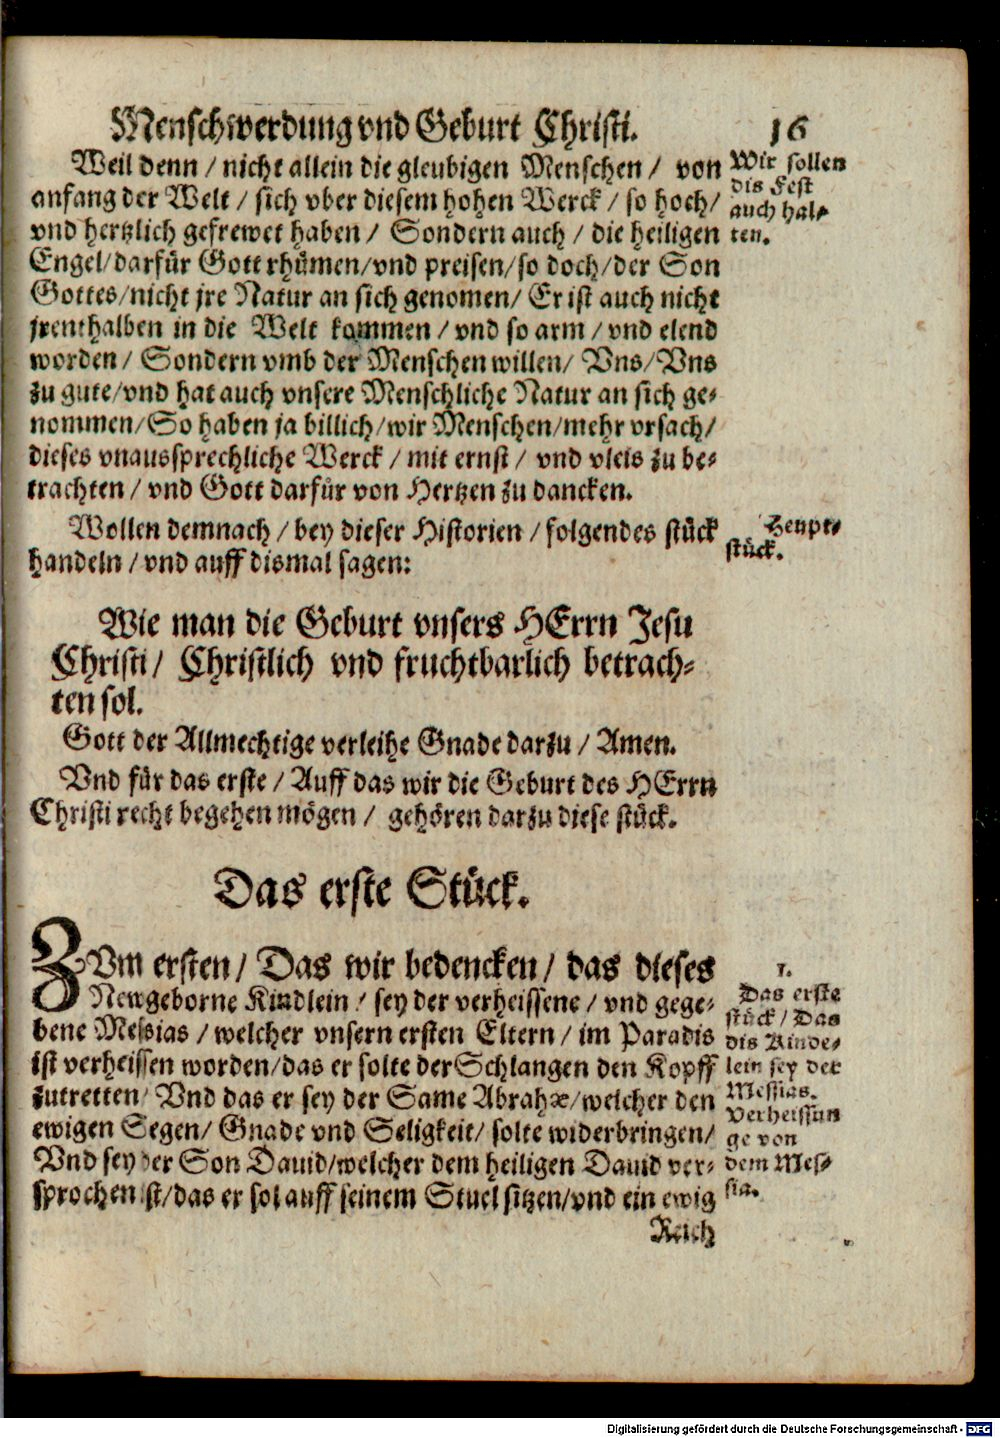 Menschwerdung vnd Geburt Christi. 16
Weil denn / nicht allein die gleubigen Menschen / von
anfang der Welt / sich vber diesem hohen Werck / so hoch /
vnd hertzlich gefrewet haben / Sondern auch / die heiligen
Engel / darfür Gott rhümen / vnd preisen / so doch / der Son
Gottes / nicht jre Natur an sich genomen / Er ist auch nicht
jrenthalben in die Welt kommen / vnd so arm / vnd elend
worden / Sondern vmb der Menschen willen / Vns / Vns
zu gute / vnd hat auch vnsere Menschliche Natur an sich ge-
nommen / So haben ja billich / wir Menschen / mehr vrsach /
dieses vnaussprechliche Werck / mit ernst / vnd vleis zu be-
trachten / vnd Gott darfür von Hertzen zu dancken.
Wir sollen
dis Fest
auch hal-
ten.
Wollen demnach / bey dieser Historien / folgendes stück
handeln / vnd auff dismal sagen:
Heupt-
stück.
Wie man die Geburt vnsers HErrn Jesu
Christi / Christlich vnd fruchtbarlich betrach-
ten sol.
Gott der Allmechtige verleihe Gnade darzu / Amen.
Vnd für das erste / Auff das wir die Geburt des HErrn
Christi recht begehen mögen / gehören darzu diese stück.
Das erste Stück.
ZVm ersten / Das wir bedencken / das dieses
Newgeborne Kindlein / sey der verheissene / vnd gege-
bene Messias / welcher vnsern ersten Eltern / im Paradis
ist verheissen worden / das er solte der Schlangen den Kopff
zutretten / Vnd das er sey der Same Abrahæ / welcher den
ewigen Segen / Gnade vnd Seligkeit / solte widerbringen /
Vnd sey der Son Dauid / welcher dem heiligen Dauid ver-
sprochen ist / das er sol auff seinem Stuel sitzen / vnd ein ewig
Reich
1.
Das erste
stück / Das
dis Kinde-
lein sey der
Messias.
Verheissun
ge von
dem Mes-
sia.
Digitalisierung gefördert durch die Deutsche Forschungsgemeinschaft - DFG